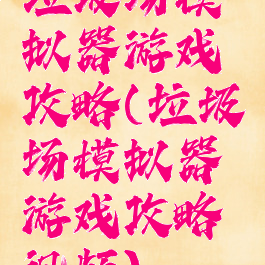 垃圾场模
拟器游戏
攻略(垃圾
场模拟器
游戏攻略
视频)